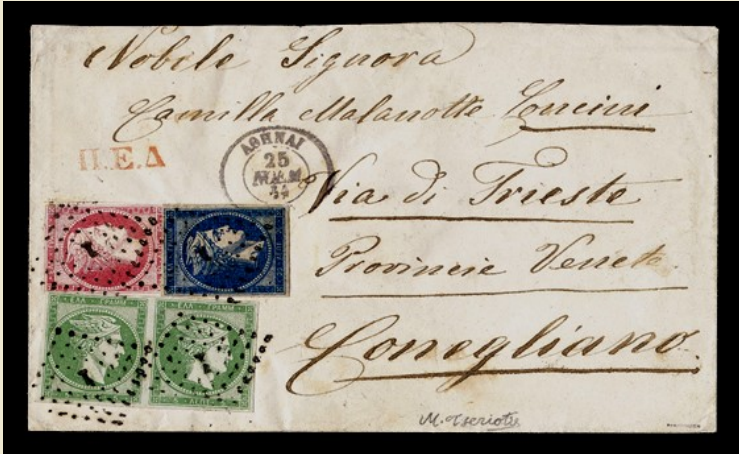 Nobile Signora
Camilla Malanotte Concini
Π.Ε.Δ
ΑΘΗΝΑΙ
25
Via di Trieste
Provincie Venete
Conegliano
ΕΛΛ. ΓΡΑΜΜ.
ΕΛΛ. ΓΡΑΜΜ.